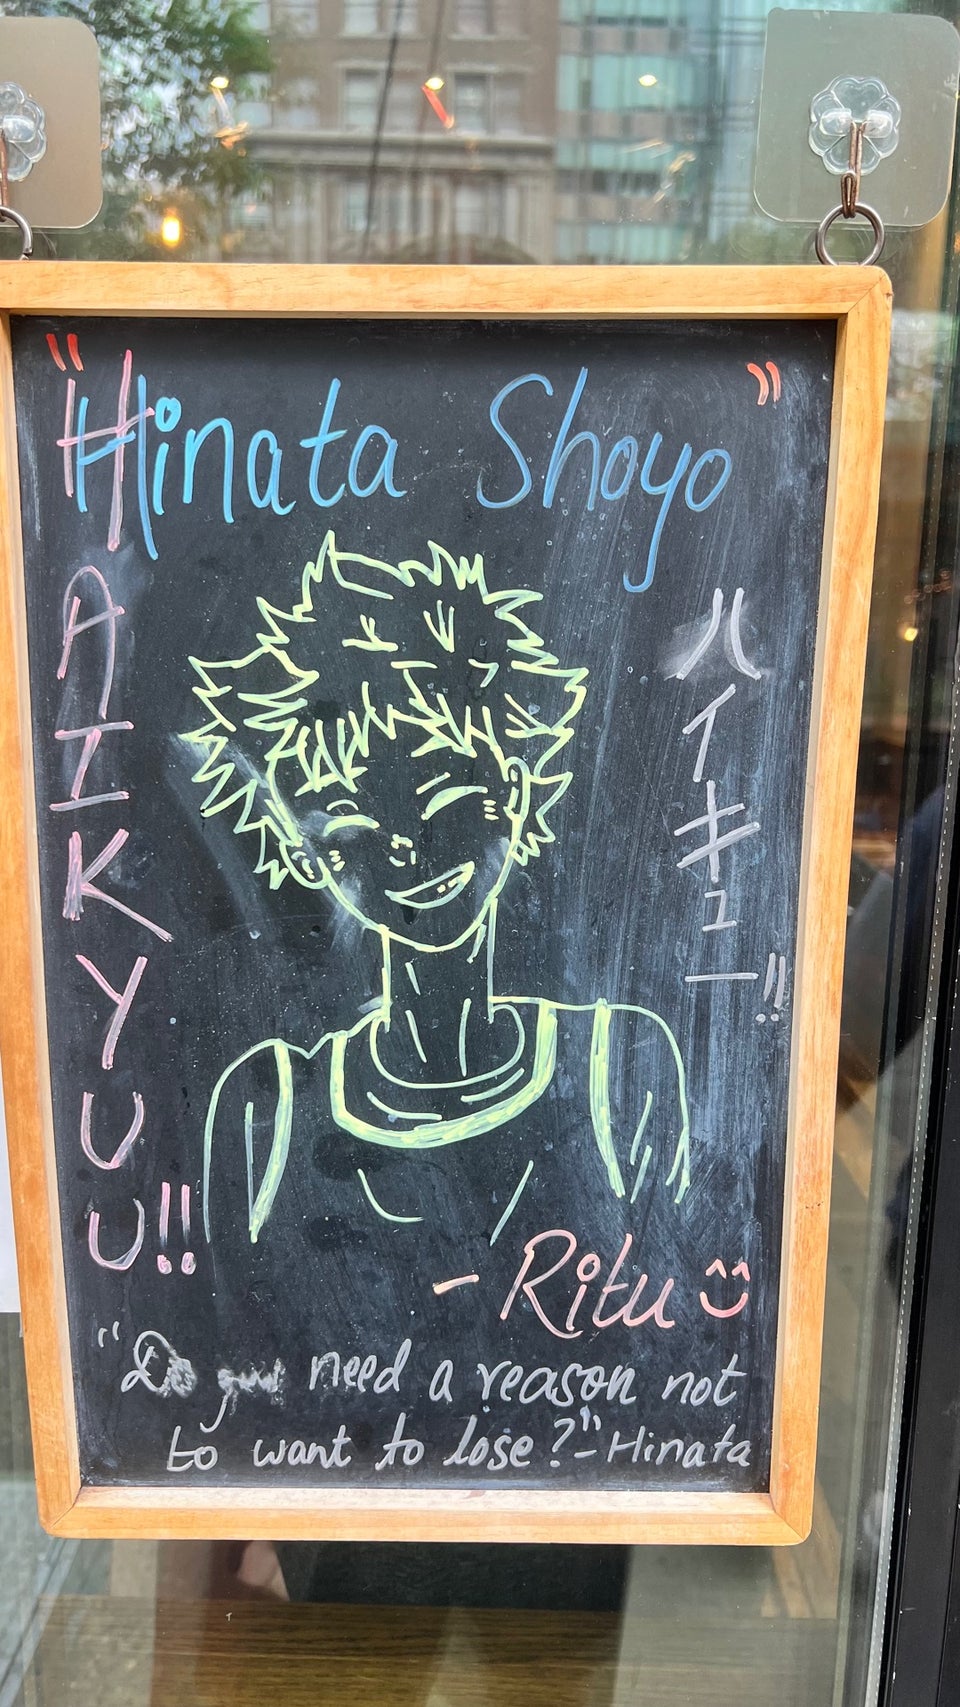 "Hinata Shoyo"
HAIKYUU!!
ハイキュー!!
- Ritu
"Do you need a reason not
to want to lose?" - Hinata